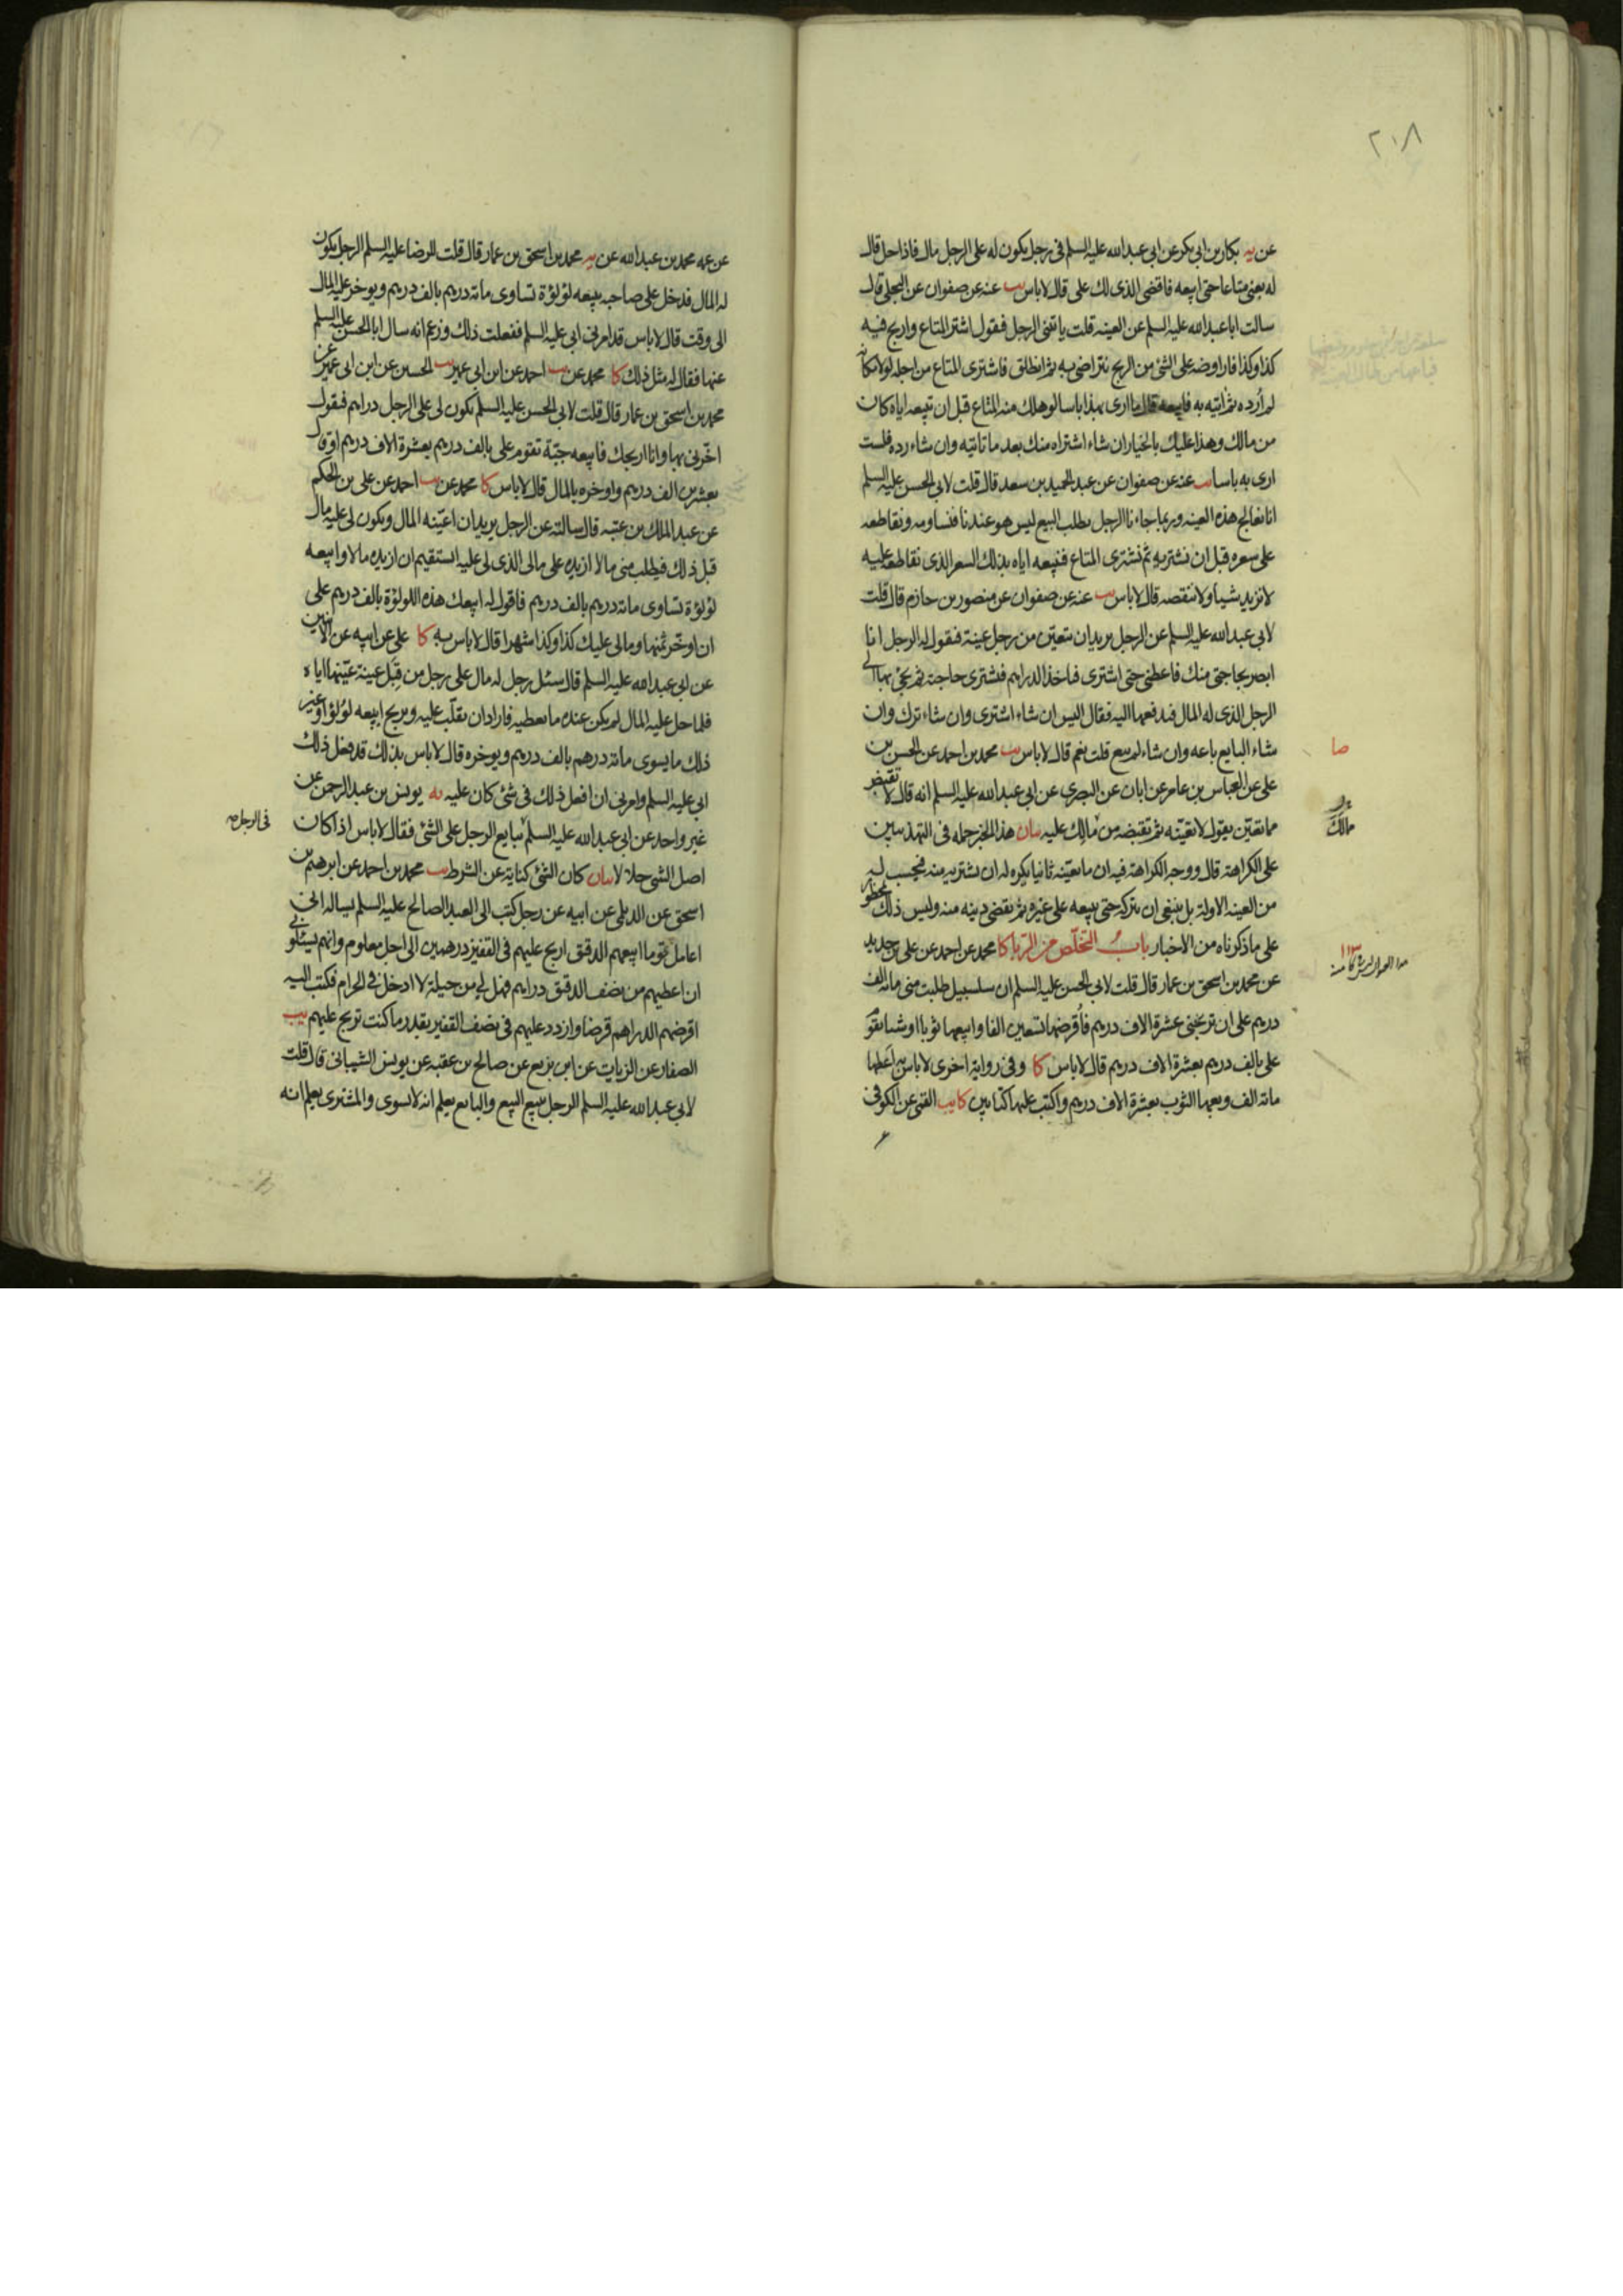 ٢٠٨
عن يه بكار بن ابي بكر عن ابي عبد الله عليه السلم في رجل يكون له على الرجل مال فاذا حل قال
له بعني متاعا حتى ابيعه فاقضي الذي لك على قال لا باس يب عنه عن صفوان عن البجلي قال
سالت ابا عبد الله عليه السلم عن العينه قلت ياتيني الرجل فيقول اشتر المتاع واربح فيه
كذا وكذا فاراوضه على الشئ من الربح نتراضى به ثم انطلق فاشترى المتاع من اجله لولا مكانه
لم ارده ثم اتيه به فابيعه قال ما ارى بهذا باسا لو هلك منه المتاع قبل ان تبيعه اياه كان
من مالك وهذا عليك بالخيار ان شاء اشتراه منك بعد ما تاتيه وان شاء رده فلست
ارى به باسا يب عنه عن صفوان عن عبد الحميد بن سعد قال قلت لابي الحسن عليه السلم
انا نعالج هذه العينه وربما جاءنا الرجل يطلب البيع ليس هو عندنا فنساومه ونقاطعه
على سعره قبل ان نشتريه ثم نشترى المتاع فنبيعه اياه بذلك السعر الذى نقاطعه عليه
لا نزيد شيئا ولا ننقصه قال لا باس يب عنه عن صفوان عن منصور بن حازم قال قلت
لابي عبد الله عليه السلم عن الرجل يريد ان يتعين من رجل عينة فيقول له الرجل انا
ابصر بحاجتى منك فاعطنى حتى اشترى فياخذ الدراهم فيشترى حاجته ثم يجئ بها الى
الرجل الذى له المال فيدفعها اليه فقال اليس ان شاء اشترى وان شاء ترك وان
شاء البايع باعه وان شاء لم يبع قلت نعم قال لا باس يب محمد بن احمد عن الحسن بن
على عن العباس بن عامر عن ابان عن البصرى عن ابى عبد الله عليه السلم انه قال لا تقبض
مما تعين يقول لا تعينه ثم تقبضه من مالك عليه بيان هذا الخبر حمله في التهذيبين
على الكراهة قال ووجه الكراهة فيه ان ما يعينه ثانيا يكره له ان يشتريه منه فيحسب له
من العينه الاولة بل ينبغى ان يتركه حتى يبيعه على غيره ثم يقضى دينه منه وليس ذلك بمحظور
على ما ذكرناه من الاخبار باب التخلص من الربا كا محمد عن احمد عن على بن حديد
عن محمد بن اسحق بن عمار قال قلت لابي الحسن عليه السلم ان سلسبيل طلبت منى مائة الف
درهم على ان تربحنى عشرة الاف درهم فاقرضها تسعين الفا وابيعها ثوبا او شيئا تقوم
على بالف درهم بعشرة الاف درهم قال لا باس كا وفى رواية اخرى لا باس به اعطها
مائة الف وبعها الثوب بعشرة الاف درهم واكتب عليها كتابين كا يب القمى عن الكوفى
صا
مالك
عن عمه محمد بن عبد الله عن يه محمد بن اسحق بن عمار قال قلت للرضا عليه السلم الرجل يكون
له المال فدخل على صاحبه يبيعه لؤلؤة تساوى مائة درهم بالف درهم ويوخر عليه المال
الى وقت قال لا باس قد امرنى ابى عليه السلم ففعلت ذلك وزعم انه سال ابا الحسن عليه السلم
عنها فقال له مثل ذلك كا محمد عن يب احمد عن ابن ابى عمير يب الحسين عن ابن ابى عمير عن
محمد بن اسحق بن عمار قال قلت لابى الحسن عليه السلم يكون لى على الرجل دراهم فيقول
اخرنى بها وانا اربحك فابيعه جبة تقوم على بالف درهم بعشرة الاف درهم او قال
بعشرين الف درهم واوخره بالمال قال لا باس كا محمد عن يب احمد عن على بن الحكم
عن عبد الملك بن عتبه قال سالته عن الرجل يريد ان اعينه المال ويكون لى عليه مال
قبل ذلك فيطلب منى مالا ازيده على مالى الذى لى عليه ايستقيم ان ازيده مالا وابيعه
لؤلؤة تساوى مائة درهم بالف درهم فاقول له ابيعك هذه اللولؤة بالف درهم على
ان اوخر ثمنها ومالى عليك كذا وكذا شهرا قال لا باس به كا على عن ابيه عن الاثنين
عن ابى عبد الله عليه السلم قال سئل رجل له مال على رجل من قبل عينة عينها اياه
فلما حل عليه المال لم يكن عنده ما يعطيه فاراد ان يقلب عليه ويربح ايبيعه لؤلؤا وغير
ذلك ما يسوى مائة درهم بالف درهم ويوخره قال لا باس بذلك قد فعل ذلك
ابى عليه السلم وامرنى ان افعل ذلك فى شئ كان عليه يه يونس بن عبد الرحمن عن
غير واحد عن ابى عبد الله عليه السلم يبايع الرجل على الشئ فقال لا باس اذا كان
اصل الشئ حلالا بيان كان الشئ كناية عن الشرط يب محمد بن احمد عن ابرهيم بن
اسحق عن الديلى عن ابيه عن رجل كتب الى العبد الصالح عليه السلم يساله انى
اعامل قوما ابيعهم الدقيق اربح عليهم فى القفيز درهمين الى اجل معلوم وانهم يسئلونى
ان اعطيهم من نصف الدقيق دراهم فهل لى من حيلة لا ادخل فى الحرام فكتب اليه
اقرضهم الدراهم قرضا وازدد عليهم فى نصف القفيز بقدر ما كنت تربح عليهم يب
الصفار عن الزيات عن ابن بزيع عن صالح بن عقبه عن يونس الشيبانى قال قلت
لابى عبد الله عليه السلم الرجل يبيع البيع والبايع يعلم انه لا يسوى والمشترى يعلم انه
فى الرجل